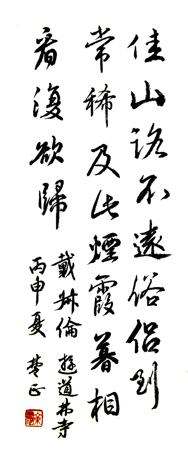 佳山路不遠俗侶到
常稀及此煙霞暮相
看復欲歸
戴叔倫 遊道林寺
丙申夏 楚正